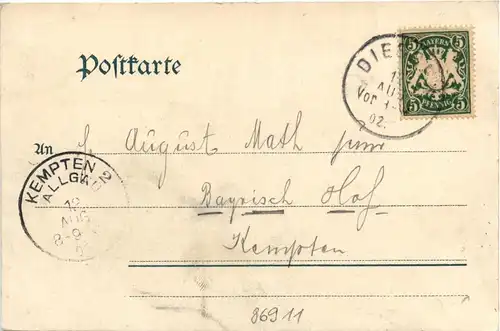 Postkarte
DIES
AUG
Vor. 1-
02.
5 BAYERN 5
5 PFENNIG 5
An
August Math jun
Bayrisch Hof
Kempten
KEMPTEN 2
ALLGÄU
12
AUG
8-9
86911